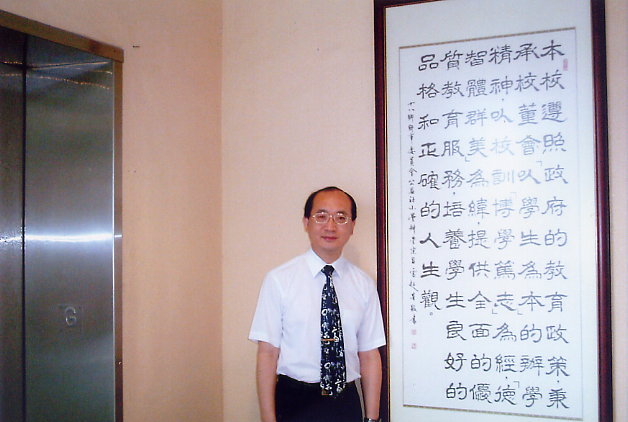 本校遵照政府的教育政策，秉
承校董會「以學生為本」的辦學
精神，以校訓「博學篤志」為經，「德
智體群美」為緯，提供全面的優
質教育服務，培養學生良好的
品格和正確的人生觀。
十八鄉鄉事委員會公益社小學辦學宗旨